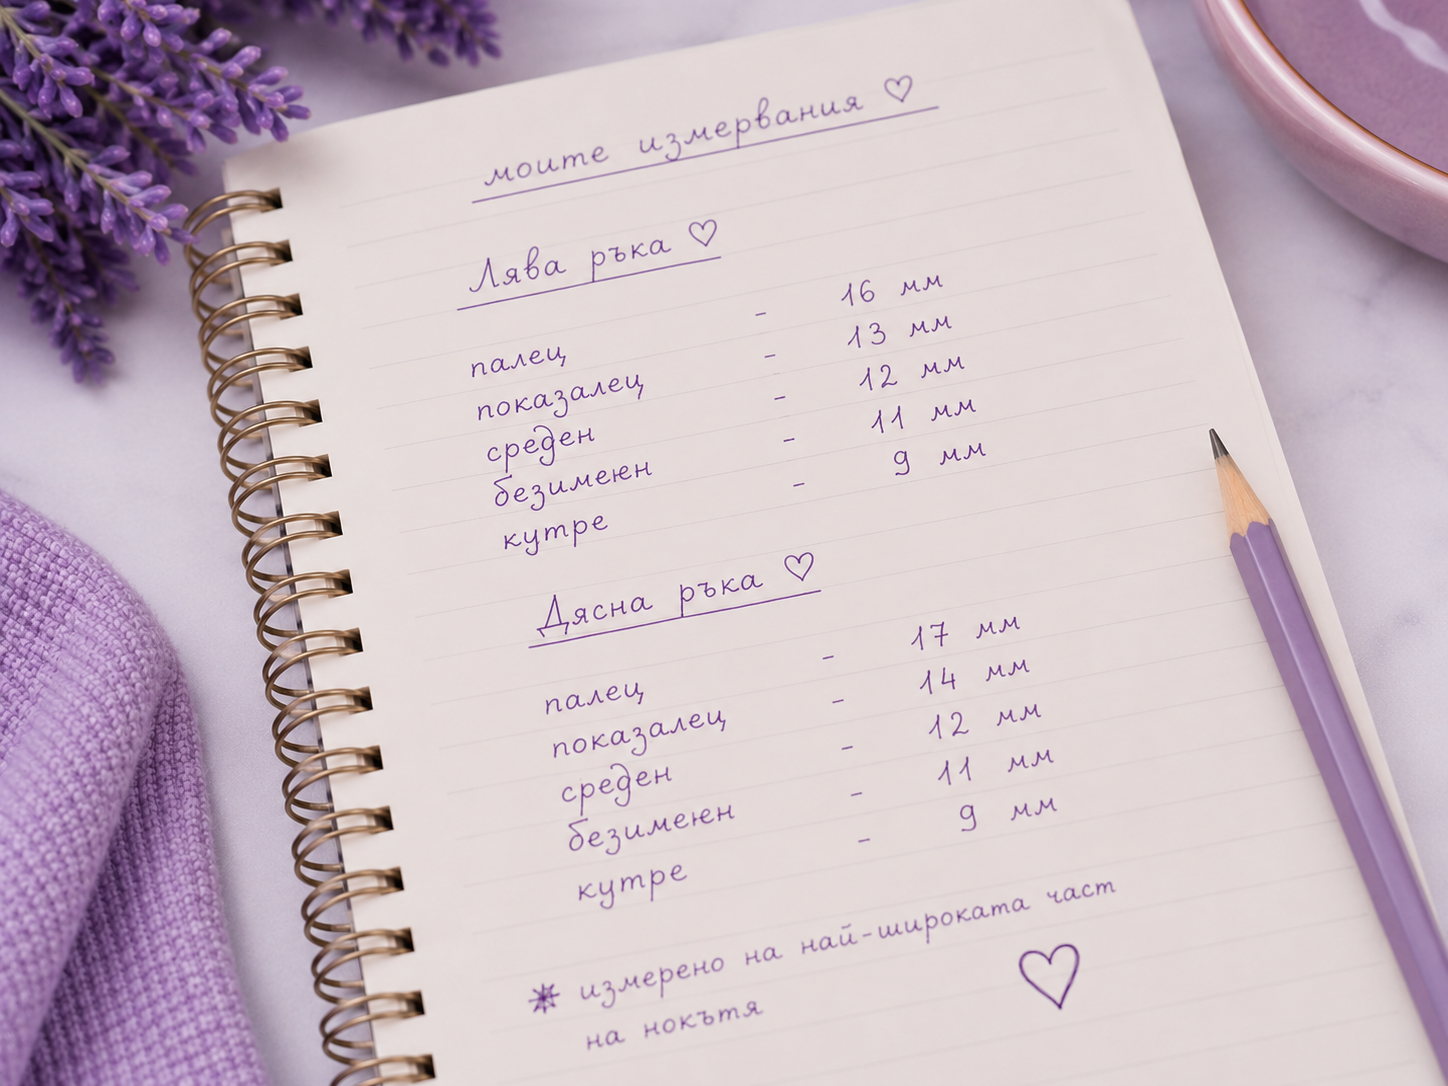 моите измервания ♡
Лява ръка ♡
палец - 16 мм
показалец - 13 мм
среден - 12 мм
безимеен - 11 мм
кутре - 9 мм
Дясна ръка ♡
палец - 17 мм
показалец - 14 мм
среден - 12 мм
безимеен - 11 мм
кутре - 9 мм
* измерено на най-широката част
на нокътя ♡